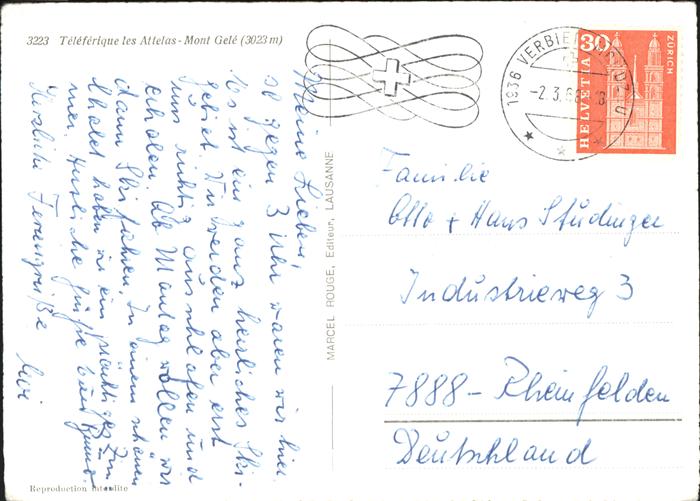 3223 Téléférique les Attelas - Mont Gelé (3023 m)
Meine Lieben,
so gegen 3 Uhr waren wir hier.
Es ist ein ganz herrliches Ski-
gebiet. Wir werden aber erst
uns richtig ausschlafen und
erholen. Ab Montag wollen wir
dann Ski fahren. In einem schönen
Chalet haben wir ein prächtiges Zim-
mer. Herzliche Grüße
Herzliche Feriengrüße
MARCEL ROUGE, Editeur, LAUSANNE
Reproduction interdite
1936 VERBIER
-2.3.6
HELVETIA
30
ZÜRICH
Familie
Otto + Hans Studinger
Industrieweg 3
7888 - Rheinfelden
Deutschland